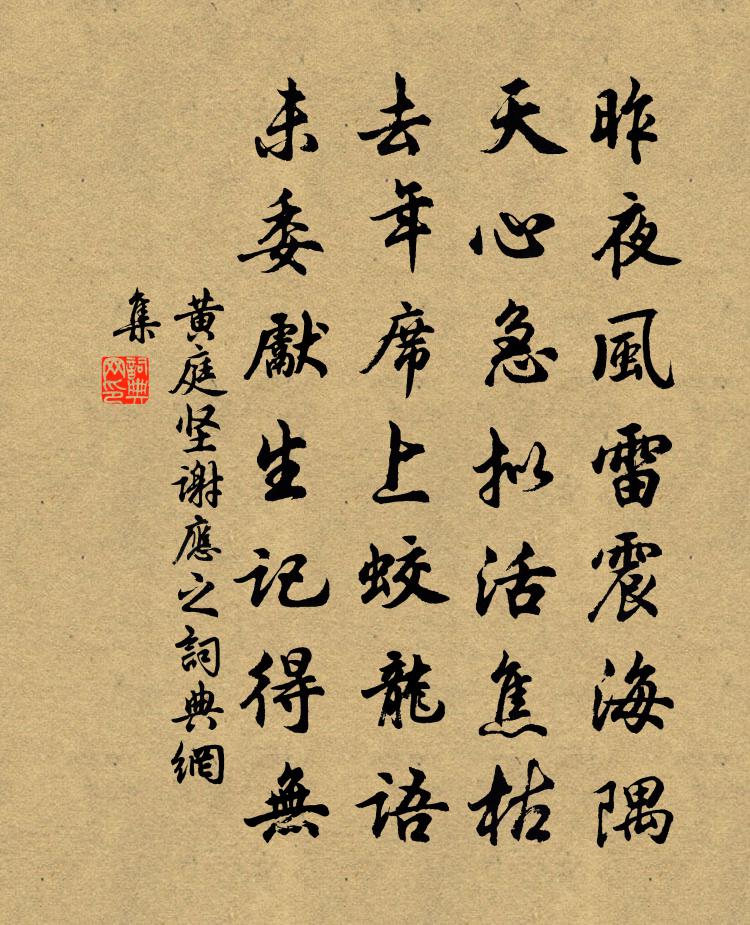 昨夜風雷震海隅
天心急拟活焦枯
去年席上蛟龍語
未委獻生記得無
黄庭坚謝應之詞典網
集
詞典
网印